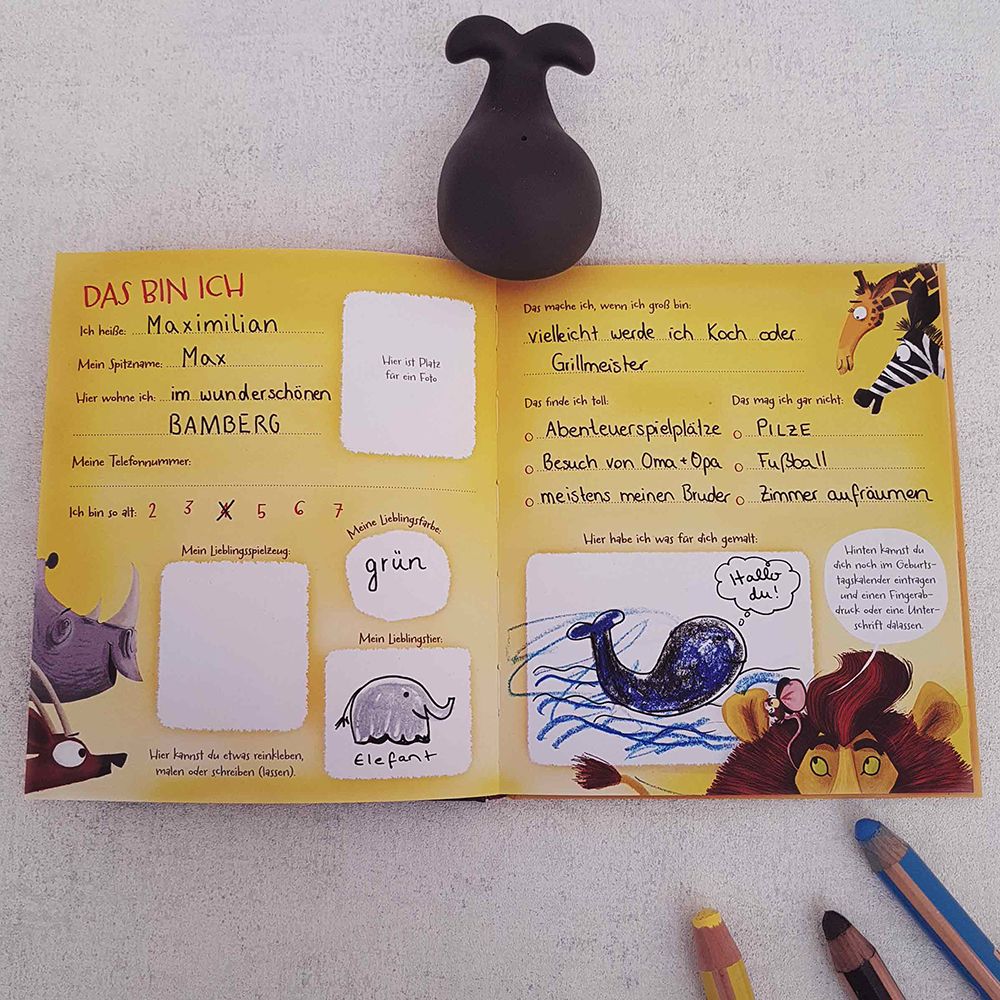 DAS BIN ICH
Ich heiße: Maximilian
Mein Spitzname: Max
Hier wohne ich: im wunderschönen
BAMBERG
Meine Telefonnummer:
Ich bin so alt: 2 3 4 5 6 7
Hier ist Platz
für ein Foto
Mein Lieblingsspielzeug:
Meine Lieblingsfarbe:
grün
Mein Lieblingstier:
Elefant
Hier kannst du etwas reinkleben,
malen oder schreiben (lassen).
Das mache ich, wenn ich groß bin:
vielleicht werde ich Koch oder
Grillmeister
Das finde ich toll:
Abenteuerspielplätze
Besuch von Oma + Opa
meistens meinen Bruder
Das mag ich gar nicht:
PILZE
Fußball
Zimmer aufräumen
Hier habe ich was für dich gemalt:
Hallo
du!
Hinten kannst du
dich noch im Geburts-
tagskalender eintragen
und einen Fingerab-
druck oder eine Unter-
schrift dalassen.